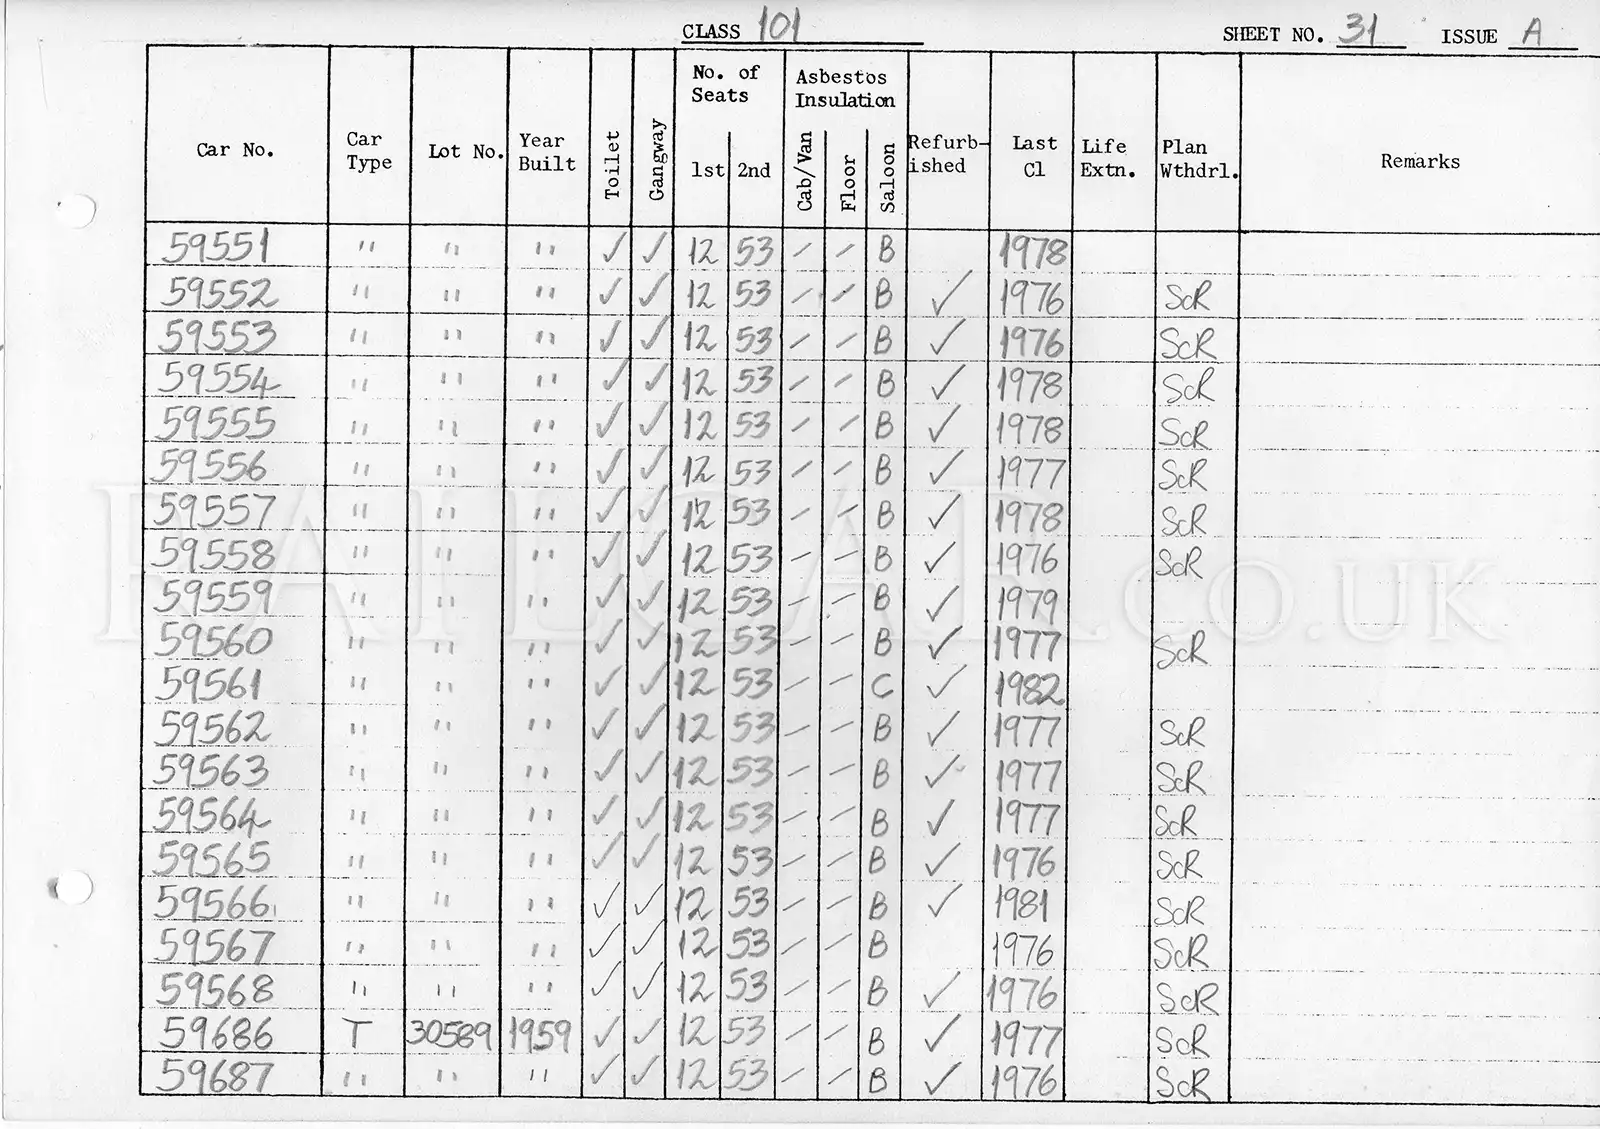 CLASS 101 SHEET NO. 31 ISSUE A
Car No. Car Type Lot No. Year Built Toilet Gangway No. of Seats 1st 2nd Asbestos Insulation Cab/Van Floor Saloon Refurb-ished Last Cl Life Extn. Plan Wthdrl. Remarks
59551 " " " ✓ ✓ 12 53 / / B 1978
59552 " " " ✓ ✓ 12 53 / / B ✓ 1976 ScR
59553 " " " ✓ ✓ 12 53 / / B ✓ 1976 ScR
59554 " " " ✓ ✓ 12 53 / / B ✓ 1978 ScR
59555 " " " ✓ ✓ 12 53 / / B ✓ 1978 ScR
59556 " " " ✓ ✓ 12 53 / / B ✓ 1977 ScR
59557 " " " ✓ ✓ 12 53 / / B ✓ 1978 ScR
59558 " " " ✓ ✓ 12 53 / / B ✓ 1976 ScR
59559 " " " ✓ ✓ 12 53 / / B ✓ 1979
59560 " " " ✓ ✓ 12 53 / / B ✓ 1977 ScR
59561 " " " ✓ ✓ 12 53 / / C ✓ 1982
59562 " " " ✓ ✓ 12 53 / / B ✓ 1977 ScR
59563 " " " ✓ ✓ 12 53 / / B ✓ 1977 ScR
59564 " " " ✓ ✓ 12 53 / / B ✓ 1977 ScR
59565 " " " ✓ ✓ 12 53 / / B ✓ 1976 ScR
59566 " " " ✓ ✓ 12 53 / / B ✓ 1981 ScR
59567 " " " ✓ ✓ 12 53 / / B 1976 ScR
59568 " " " ✓ ✓ 12 53 / / B ✓ 1976 ScR
59686 T 30589 1959 ✓ ✓ 12 53 / / B ✓ 1977 ScR
59687 " " " ✓ ✓ 12 53 / / B ✓ 1976 ScR
RAILCAR.CO.UK